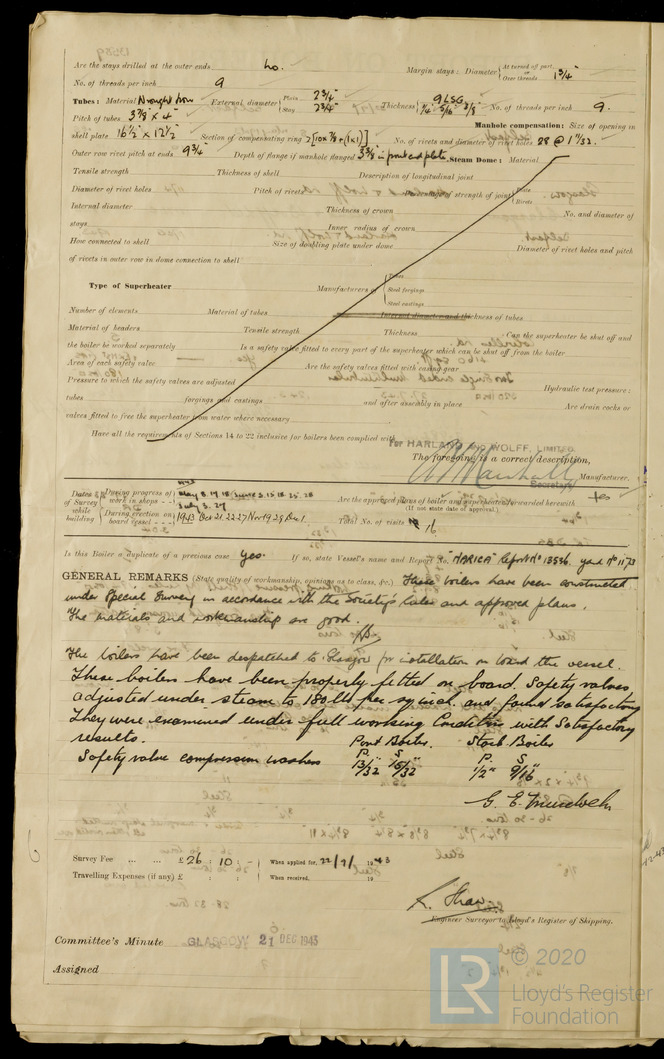 Are the stays drilled at the outer ends No. Margin stays: Diameter { At turned off part, or Over threads 1 3/4"
No. of threads per inch 9
Tubes: Material Wrought Iron External diameter { Plain 2 3/4" Stay 2 3/4" Thickness { 9 LSG 1/4" 5/16" 3/8 No. of threads per inch 9.
Pitch of tubes 3 7/8 x 4" Manhole compensation: Size of opening in
shell plate 16 1/2" x 12 1/2 Section of compensating ring No. of rivets and diameter of rivet holes 28 @ 1 11/32.
Outer row rivet pitch at ends 9 3/4" Depth of flange if manhole flanged 3 3/8 in front end plate. Steam Dome: Material
Tensile strength Thickness of shell Description of longitudinal joint
Diameter of rivet holes Pitch of rivets Percentage of strength of joint { Plate Rivets
Internal diameter Thickness of crown No. and diameter of
stays Inner radius of crown
How connected to shell Size of doubling plate under dome Diameter of rivet holes and pitch
of rivets in outer row in dome connection to shell
Type of Superheater Manufacturers of { Tubes Steel forgings Steel castings
Number of elements Material of tubes Internal diameter and thickness of tubes
Material of headers Tensile strength Thickness Can the superheater be shut off and
the boiler be worked separately Is a safety valve fitted to every part of the superheater which can be shut off from the boiler
Area of each safety valve Are the safety valves fitted with easing gear
Pressure to which the safety valves are adjusted Hydraulic test pressure:
tubes forgings and castings and after assembly in place Are drain cocks or
valves fitted to free the superheater from water where necessary
Have all the requirements of Sections 14 to 22 inclusive for boilers been complied with
For HARLAND AND WOLFF, LIMITED
The foregoing is a correct description,
Manufacturer.
Secretary
Dates of Survey while building { During progress of work in shops - - 1943 May 8. 17 18 June 3. 15 18. 25. 28 July 3. 27
During erection on board vessel - - - 1943 Oct 21 22 27 Nov 19 29 Dec 1
Are the approved plans of boiler and superheater forwarded herewith yes
(If not state date of approval.)
Total No. of visits 16
Is this Boiler a duplicate of a previous case Yes. If so, state Vessel's name and Report No. "NARICA" Report No 13536. yard No 1173
GENERAL REMARKS (State quality of workmanship, opinions as to class, &c.) These boilers have been constructed
under Special Survey in accordance with the Society's Rules and approved plans.
The materials and workmanship are good.
The boilers have been despatched to Glasgow for installation on board the vessel.
These boilers have been properly fitted on board. Safety valves
adjusted under steam to 180 lbs per sq inch. and found satisfactory
They were examined under full working Condition with Satisfactory
results. Port Boiler. Starb Boiler
P. S P. S.
Safety valve compression washers 13/32 15/32" 1/2" 9/16"
Survey Fee ... ... £26 : 10 : - When applied for, 22/7/ 1943
Travelling Expenses (if any) £ : : When received, 19
Engineer Surveyor to Lloyd's Register of Shipping.
Committee's Minute GLASGOW 21 DEC 1943
Assigned
LR © 2020
Lloyd's Register
Foundation